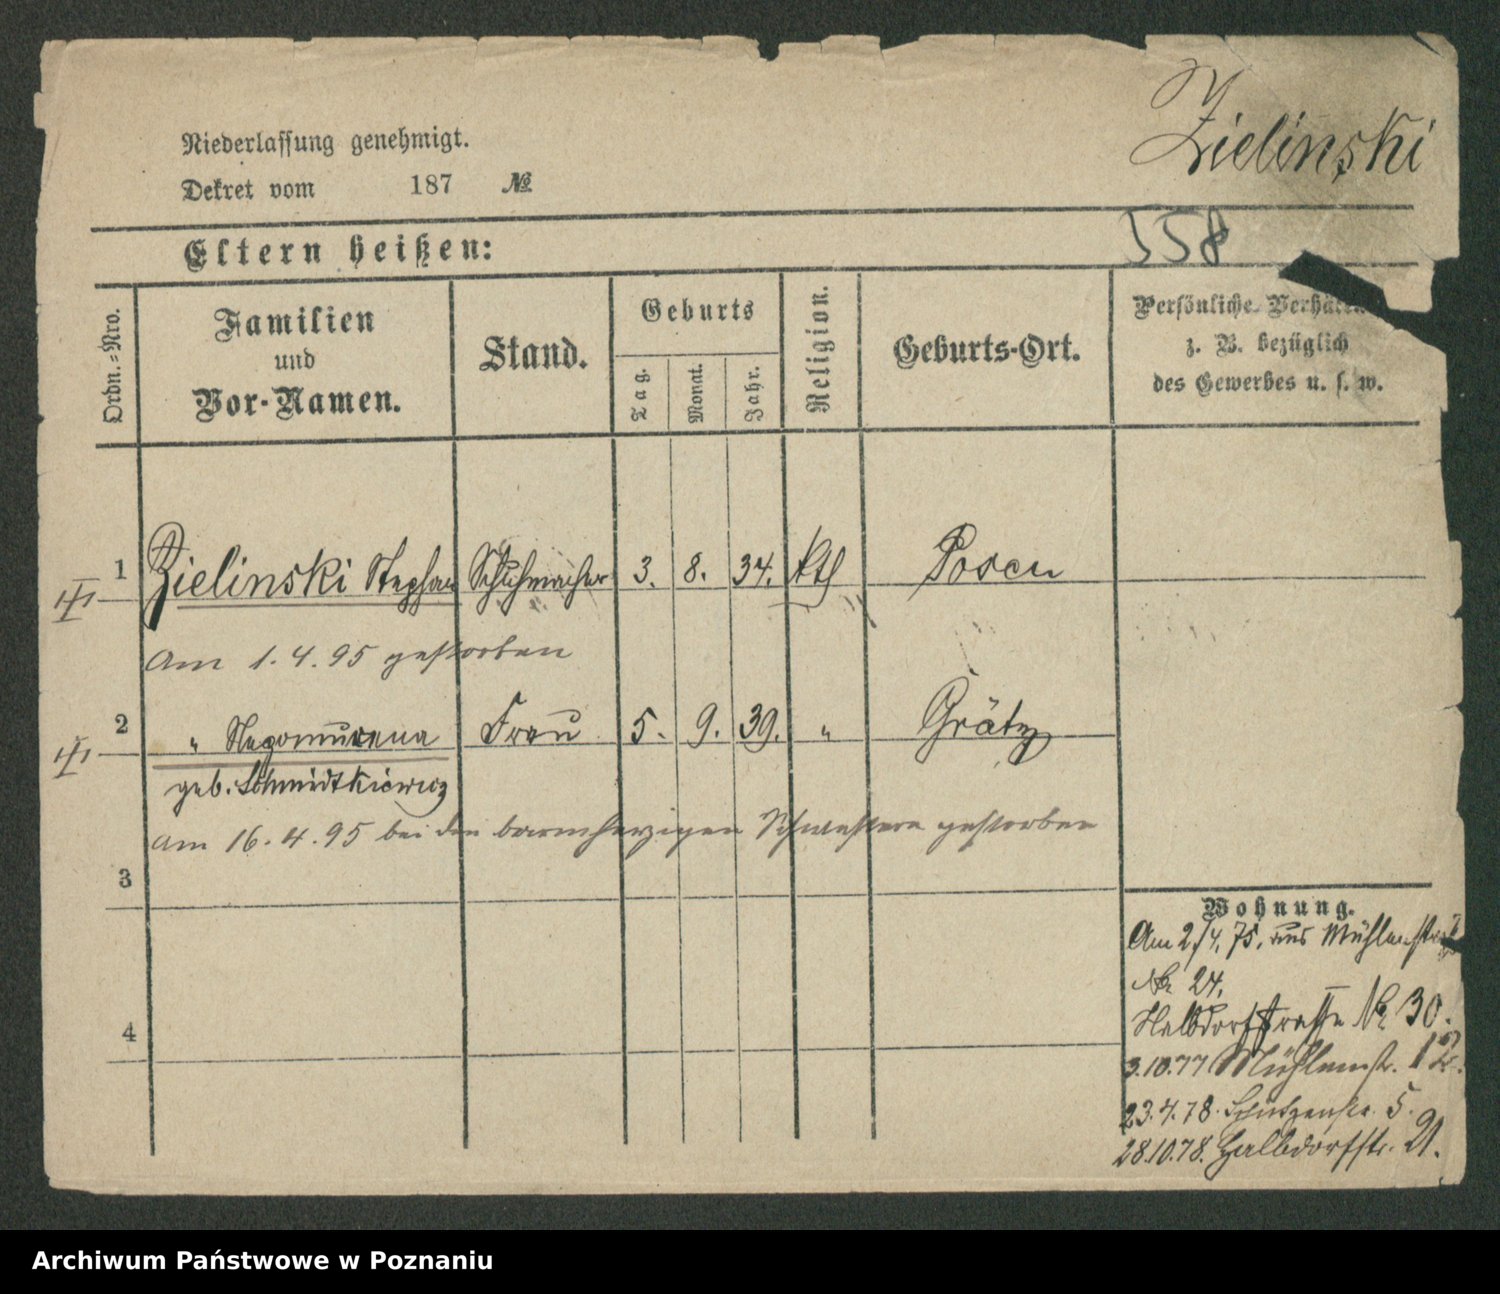 Zielinski
Niederlassung genehmigt.
Dekret vom 187 №
558
Eltern heißen:
Ordn.-Nro.
Familien
und
Vor-Namen.
Stand.
Geburts
Tag.
Monat.
Jahr.
Religion.
Geburts-Ort.
Persönliche
z. B. bezüglich
des Gewerbes u. s. w.
1 Zielinski Stephan Schuhmacher 3. 8. 34. kth Posen
Am 1.4.95 gestorben
2 " Nepomucena Frau 5. 9. 39. " Grätz
geb. Schmidtkiewicz
Am 16.4.95 bei den barmherzigen Schwestern gestorben
3
4
Wohnung.
Am 2/4. 75. aus Mühlenstraße
No 24.
Halbdorfstrasse No 30.
3.10.77 Mühlenstr. 12.
23.4.78. Schützenstr. 5.
28.10.78. Halbdorfstr. 21.
Archiwum Państwowe w Poznaniu